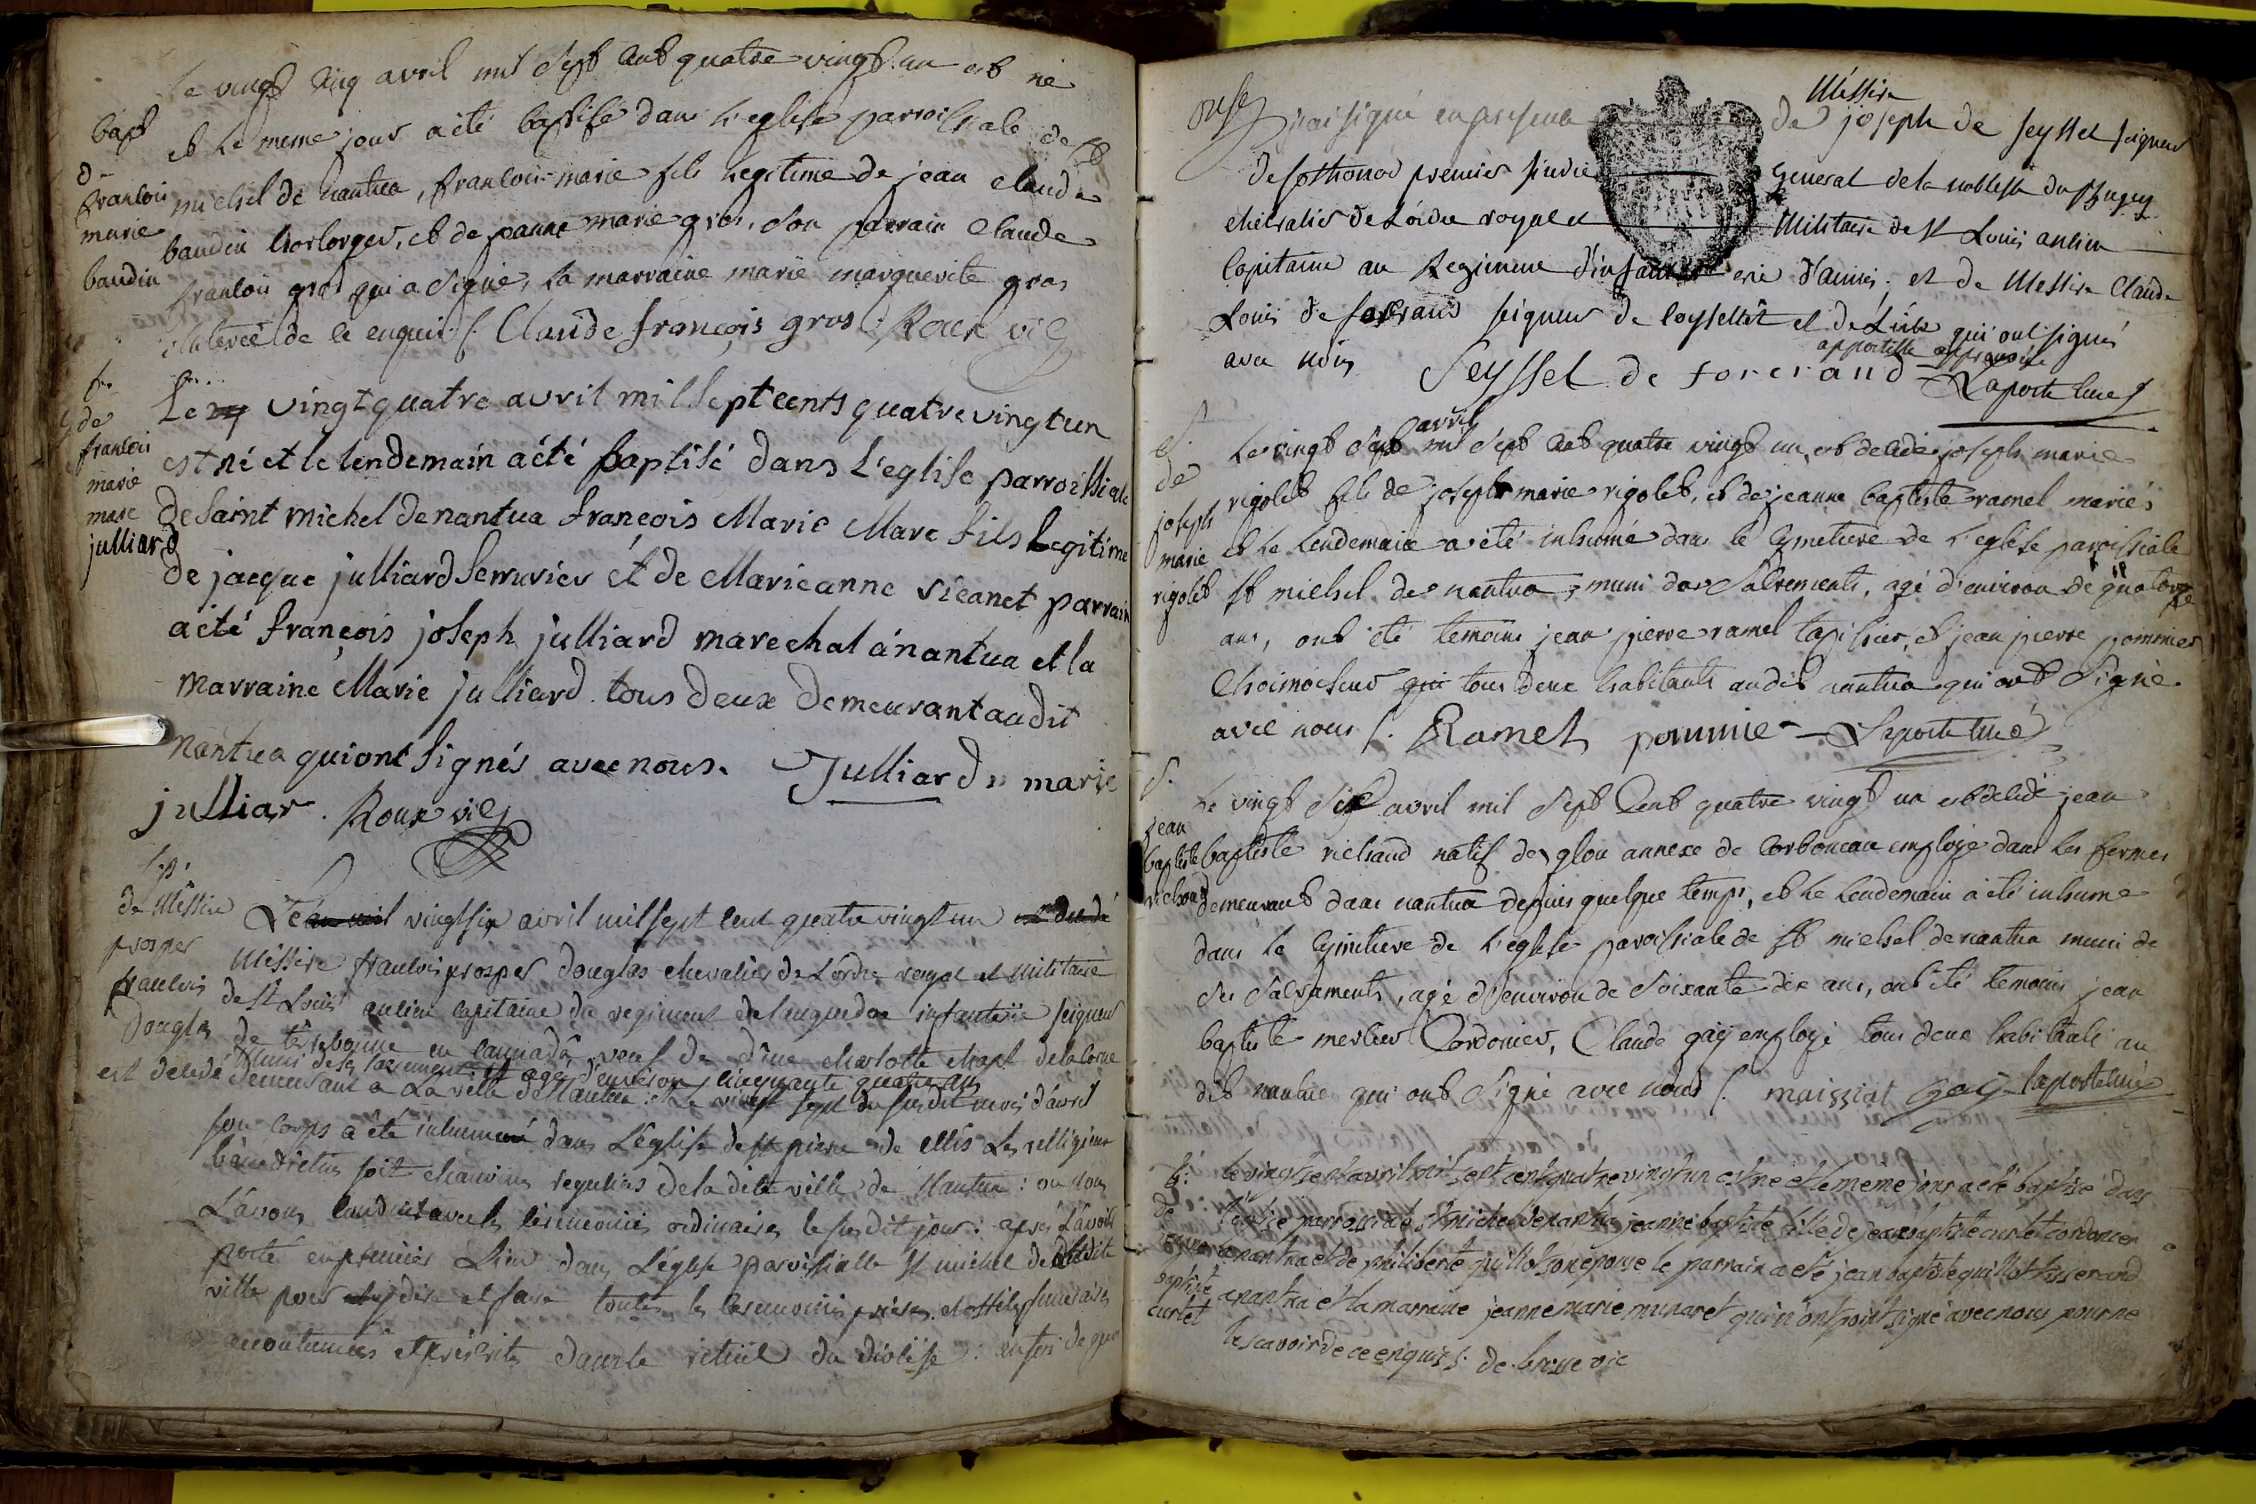 le vingt cinq avril mil Sept cent quatre vingt un est né
et le meme jour a été baptisé dans l'eglise parroissiale de st
michel de nantua, francois marie fils legitime de jean claude
baudin horloger, et de jeanne marie gros, son parrain claude
francois gros qui a signé, la marraine marie marguerite gros
illiterée de ce enquis /. Claude françois gros Roux vic
bapt
d
francois
marie
baudin
Le vingt quatre avril mil sept cents quatre vingt un
est né et le lendemain a été baptisé dans L'eglise parroissiale
de saint michel de nantua françois Marie Marc fils Legitime
de jacque julliard Serrurier et de Marie anne vicanet parrain
a été françois joseph julliard marechal a nantua et la
marraine Marie julliard tous deux demeurant audit
nantua qui ont signés avec nous. Julliard marie
julliar . Roux vic
de
francois
marie
marc
julliard
Le vingt six avril mil sept cent quatre vingt un
Méssire francois prosper douglas chevalier de L'ordre royal et militaire
de st Louis ancien capitaine du regiment de languedoc infanterie seigneur
de terrebonne en cannada, veuf de dme charlotte chapt de la corne
muni de ses sacrements et agé d'environ cinquante quatre ans
est decedé demeurant a La ville de Nantua : et Le vingt sept du susdit mois d'avril
son corps a été inhummé dans L'église de st pierre de Mrs Les relligieux
bénédictins soit chanoines reguliers de la dite ville de Nantua : ou nous
L'avons conduit avec les cérémonies ordinaires le susdit jour : apres L'avoir
porté en premier Lieu dans L'église parroissialle st michel de ladite
ville pour y dire et faire toutes les ceremonies prieres et offices funeraires
accoutumées et préscrites dans le rituel du diocèse : en foi de quoi
de Méssire
prosper
francois
Douglas
j'ai signé en presence de Méssire joseph de seyssel seigneur
de sothonod premier sindic general de la noblesse du Bugey
chevalier de L'ordre royal et Militaire de st Louis ancien
capitaine au Regiment d'infanterie d'aunis ; et de Messire Claude
Louis de forcrand seigneur de coysselet et de qui ont signés
avec nous Seyssel de forcrand appostille approuvée Laporte curé
Le vingt sept avril mil sept cent quatre vingt un est decedé joseph marie
rigolet fils de joseph marie rigolet, et de jeanne baptiste ramel mariés
et le lendemain a été inhumé dans le cymetiere de l'eglise paroissiale
st michel de nantua, muni des sacrements, agé d'environ de quatorze
ans, ont été temoins jean pierre ramel tapissier, et jean pierre pommier
chamoiseur qui tous deux habitants audit nantua qui ont signé
avec nous /. Ramel pommie Laporte curé
S.
de
joseph
marie
rigolet
Le vingt six avril mil sept cent quatre vingt un est decedé jean
baptiste richaud natif de glou annexe de corbonau employé dans les fermes
demeurant dans nantua depuis quelque temps, et le lendemain a été inhumé
dans le cymetiere de l'eglise paroissiale de st michel de nantua muni de
ses sacraments, agé d'environ de soixante dix ans, ont été temoins jean
baptiste mercier cordonier, Claude gay employé tous deux habitants au
dit nantua qui ont signé avec nous /. maissiat gay laporte curé
S.
jean
baptiste
richaud
le vingt sept avril mil sept cent quatre vingt un est né et le meme jour a eté baptisé dans
l'eglise parroissiale st michel de nantua jeanne baptiste fille de jean baptiste curtet cordonier
a nantua et de philiberte guillot son epouse le parrain a eté jean baptiste guillot tisserand
a nantua et la marraine jeanne marie munaret qui n'ont point signé avec nous pour ne
le scavoir de ce enquis /. de brosse vic
b:
de
jeanne
baptiste
curtet